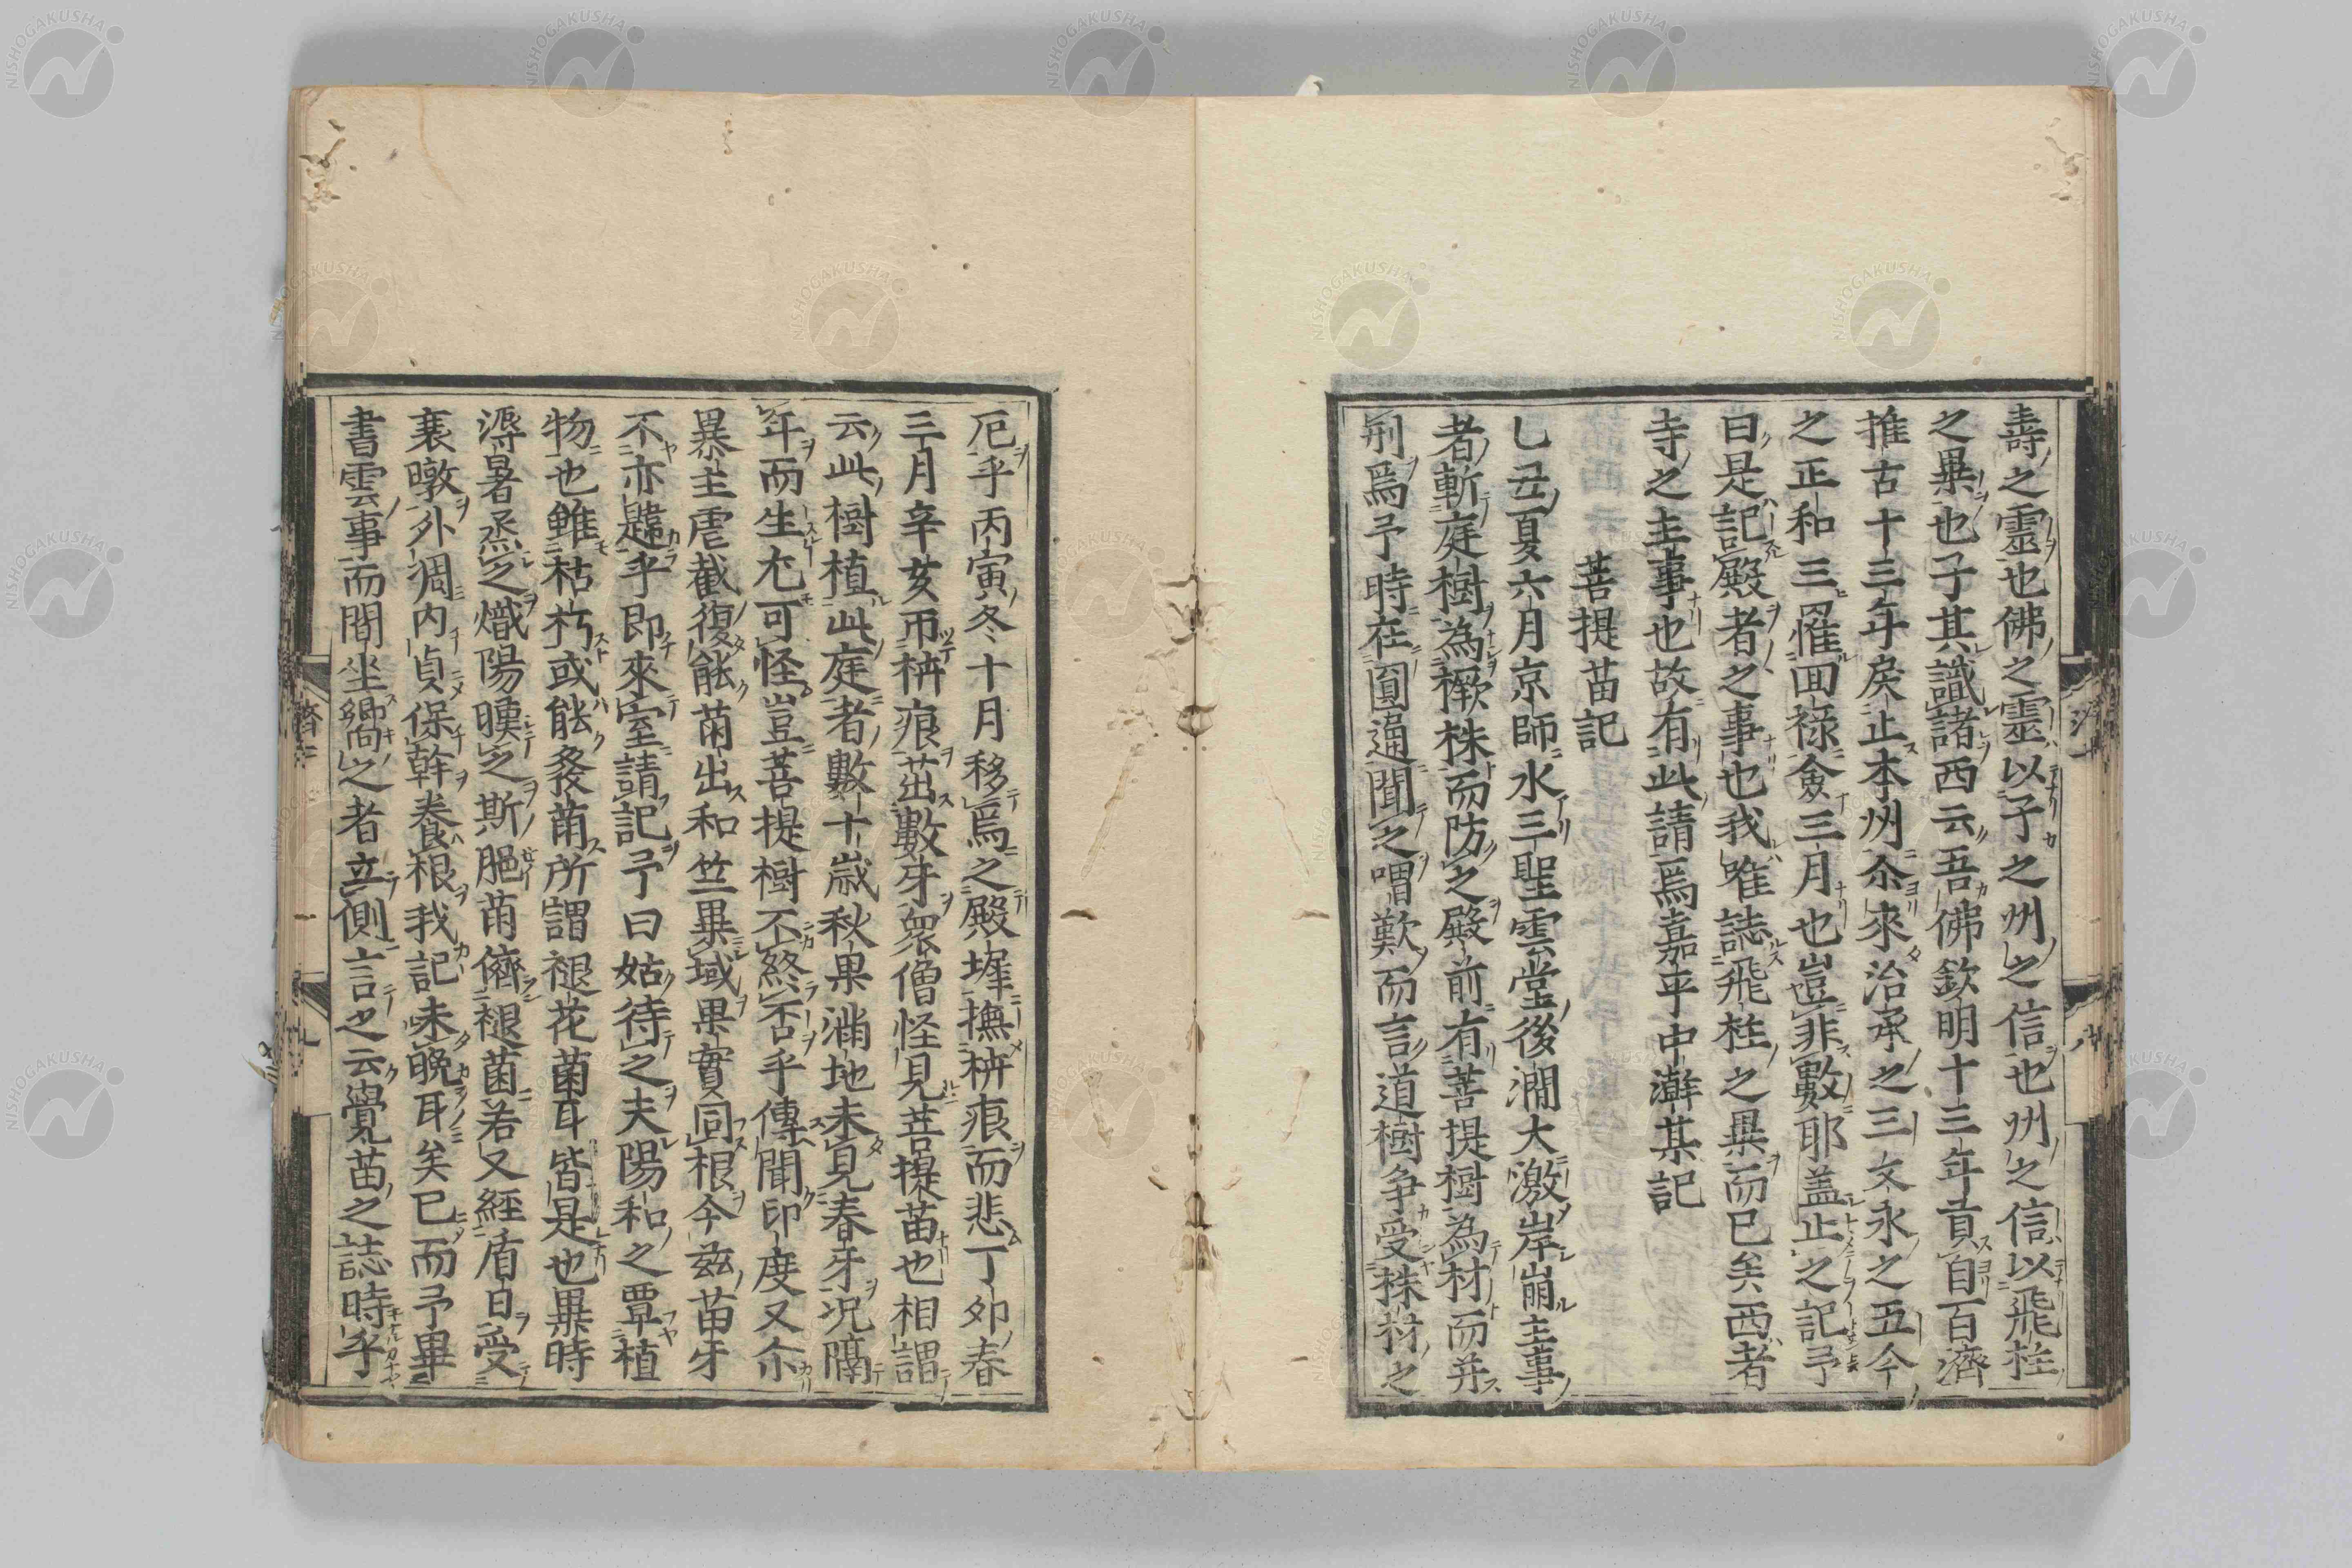 壽之靈也佛之靈以子之州之信也州之信以飛柱
之異也子其識諸西云吾佛欽明十三年貢自百濟
推古十三年戾止本州尒來治承之三文永之五今
之正和三罹囬祿僉三月也豈非數耶盖止之記予
曰是記殿者之事也我唯誌飛柱之異而已矣西者
寺之主事也故有此請焉嘉平中澣某記
菩提苗記
乚丑夏六月京師水三聖雲堂後澗大激岸崩主事
者斬庭樹為橛株而防之殿前有菩提樹為材而并
刑焉予時在圓通聞之喟歎而言道樹争受株材之
厄乎丙寅冬十月移焉之殿墀撫枿痕而悲丁夘春
三月辛亥帀枿痕茁數牙衆僧怪見菩提苗也相謂
云此樹植此庭者數十嵗秋果滿地未見春牙况隔
年而生尤可怪豈菩提樹不終否乎傳聞印度又尒
暴主虐截復能萌出和竺異域果實同根今兹苗牙
不亦韙乎即來室請記予曰姑待之夫陽和之覃植
物也雖枯朽或能發萌所謂褪花菌耳皆是也異時
溽暑烝之熾陽暵之斯脃萌儕褪菌若又經盾日受
襄暾外凋内貞保幹養根我記未晩耳矣已而予畢
書雲事而間坐嚮之者立側言之云覺苗之誌時乎
濟 八
濟 九